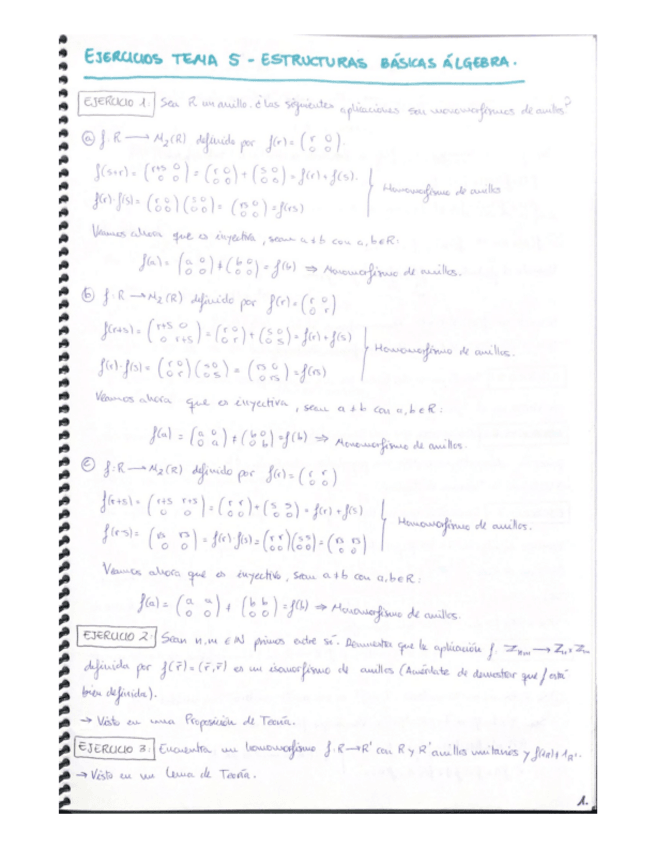 EJERCICIOS TEMA 5 - ESTRUCTURAS BÁSICAS ÁLGEBRA.
EJERCICIO 1: Sea R un anillo. ¿Las siguientes aplicaciones son monomorfismos de anillos?
a) f: R → M₂(R) definido por f(r) = (r 0 / 0 0).
f(s+r) = (r+s 0 / 0 0) = (r 0 / 0 0) + (s 0 / 0 0) = f(r) + f(s).
Homomorfismo de anillos
f(r)·f(s) = (r 0 / 0 0)(s 0 / 0 0) = (rs 0 / 0 0) = f(rs)
Veamos ahora que es inyectiva, sean a ≠ b con a, b ∈ R:
f(a) = (a 0 / 0 0) ≠ (b 0 / 0 0) = f(b) ⇒ Monomorfismo de anillos.
b) f: R → M₂(R) definido por f(r) = (r 0 / 0 r)
f(r+s) = (r+s 0 / 0 r+s) = (r 0 / 0 r) + (s 0 / 0 s) = f(r) + f(s)
Homomorfismo de anillos.
f(r)·f(s) = (r 0 / 0 r)(s 0 / 0 s) = (rs 0 / 0 rs) = f(rs)
Veamos ahora que es inyectiva, sean a ≠ b con a, b ∈ R:
f(a) = (a 0 / 0 a) ≠ (b 0 / 0 b) = f(b) ⇒ Monomorfismo de anillos.
c) f: R → M₂(R) definido por f(r) = (r r / 0 0)
f(r+s) = (r+s r+s / 0 0) = (r r / 0 0) + (s s / 0 0) = f(r) + f(s)
Homomorfismo de anillos.
f(r·s) = (rs rs / 0 0) = f(r)·f(s) = (r r / 0 0)(s s / 0 0) = (rs rs / 0 0)
Veamos ahora que es inyectiva, sean a ≠ b con a, b ∈ R:
f(a) = (a a / 0 0) ≠ (b b / 0 0) = f(b) ⇒ Monomorfismo de anillos.
EJERCICIO 2: Sean n, m ∈ ℕ primos entre sí. Demuestra que la aplicación f: Zₙₘ → Zₙ × Zₘ
definida por f(r̄) = (r̄, r̄) es un isomorfismo de anillos (Acuérdate de demostrar que f está
bien definida).
→ Visto en una Proposición de Teoría.
EJERCICIO 3: Encuentra un homomorfismo f: R → R' con R y R' anillos unitarios y f(1R) ≠ 1R'.
→ Visto en un Lema de Teoría.
1.